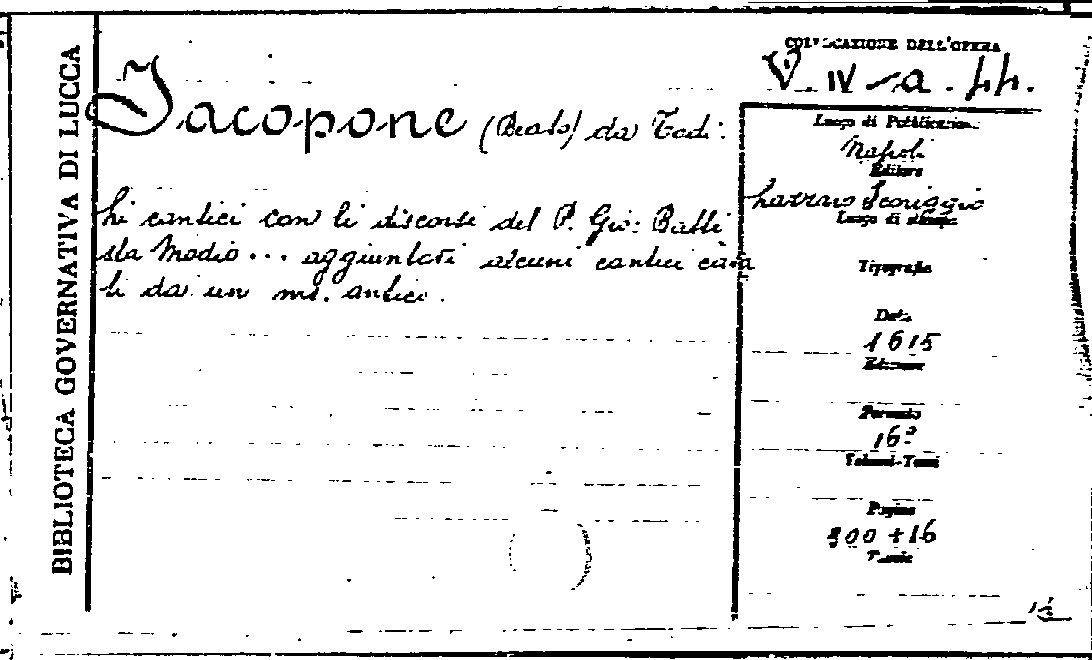 BIBLIOTECA GOVERNATIVA DI LUCCA
Jacopone (Beato) da Todi.
Li cantici con li discorsi del P. Gio: Batti
sta Modio... aggiuntovi alcuni cantici cava
ti da un ms. antico.
COLLOCAZIONE DELL'OPERA
V. IV - a. 44.
Luogo di Pubblicazione
Napoli
Editore
Lazzaro Scoriggio
Luogo di stampa
Tipografia
Data
1615
Edizione
Formato
16º
Volumi-Tomi
Pagine
+ 16
Tavole